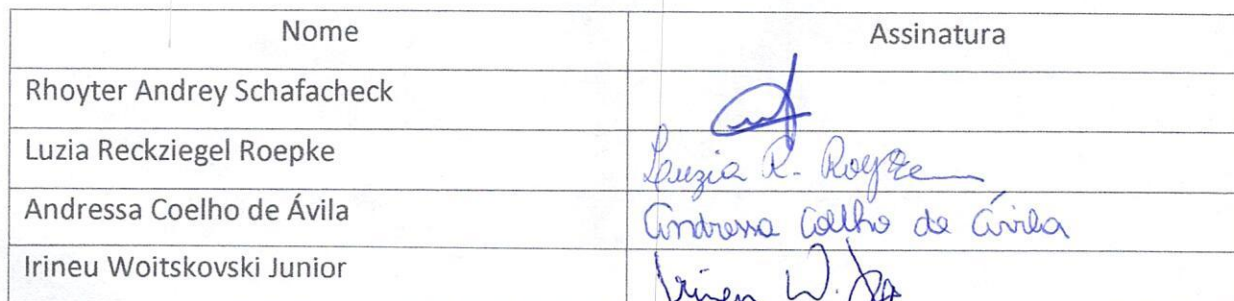 Nome Assinatura
Rhoyter Andrey Schafacheck
Luzia Reckziegel Roepke Luzia R. Roepke
Andressa Coelho de Ávila Andressa Coelho de Ávila
Irineu Woitskovski Junior Irineu W. Jr